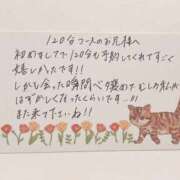 120分コースのお兄様へ
初めましてで120分も予約してくれてすごく
嬉しかったです!!
しかも会った瞬間べた褒めで むしろ私が
はずかしくなったくらいです…!!!
また来て下さいね!!